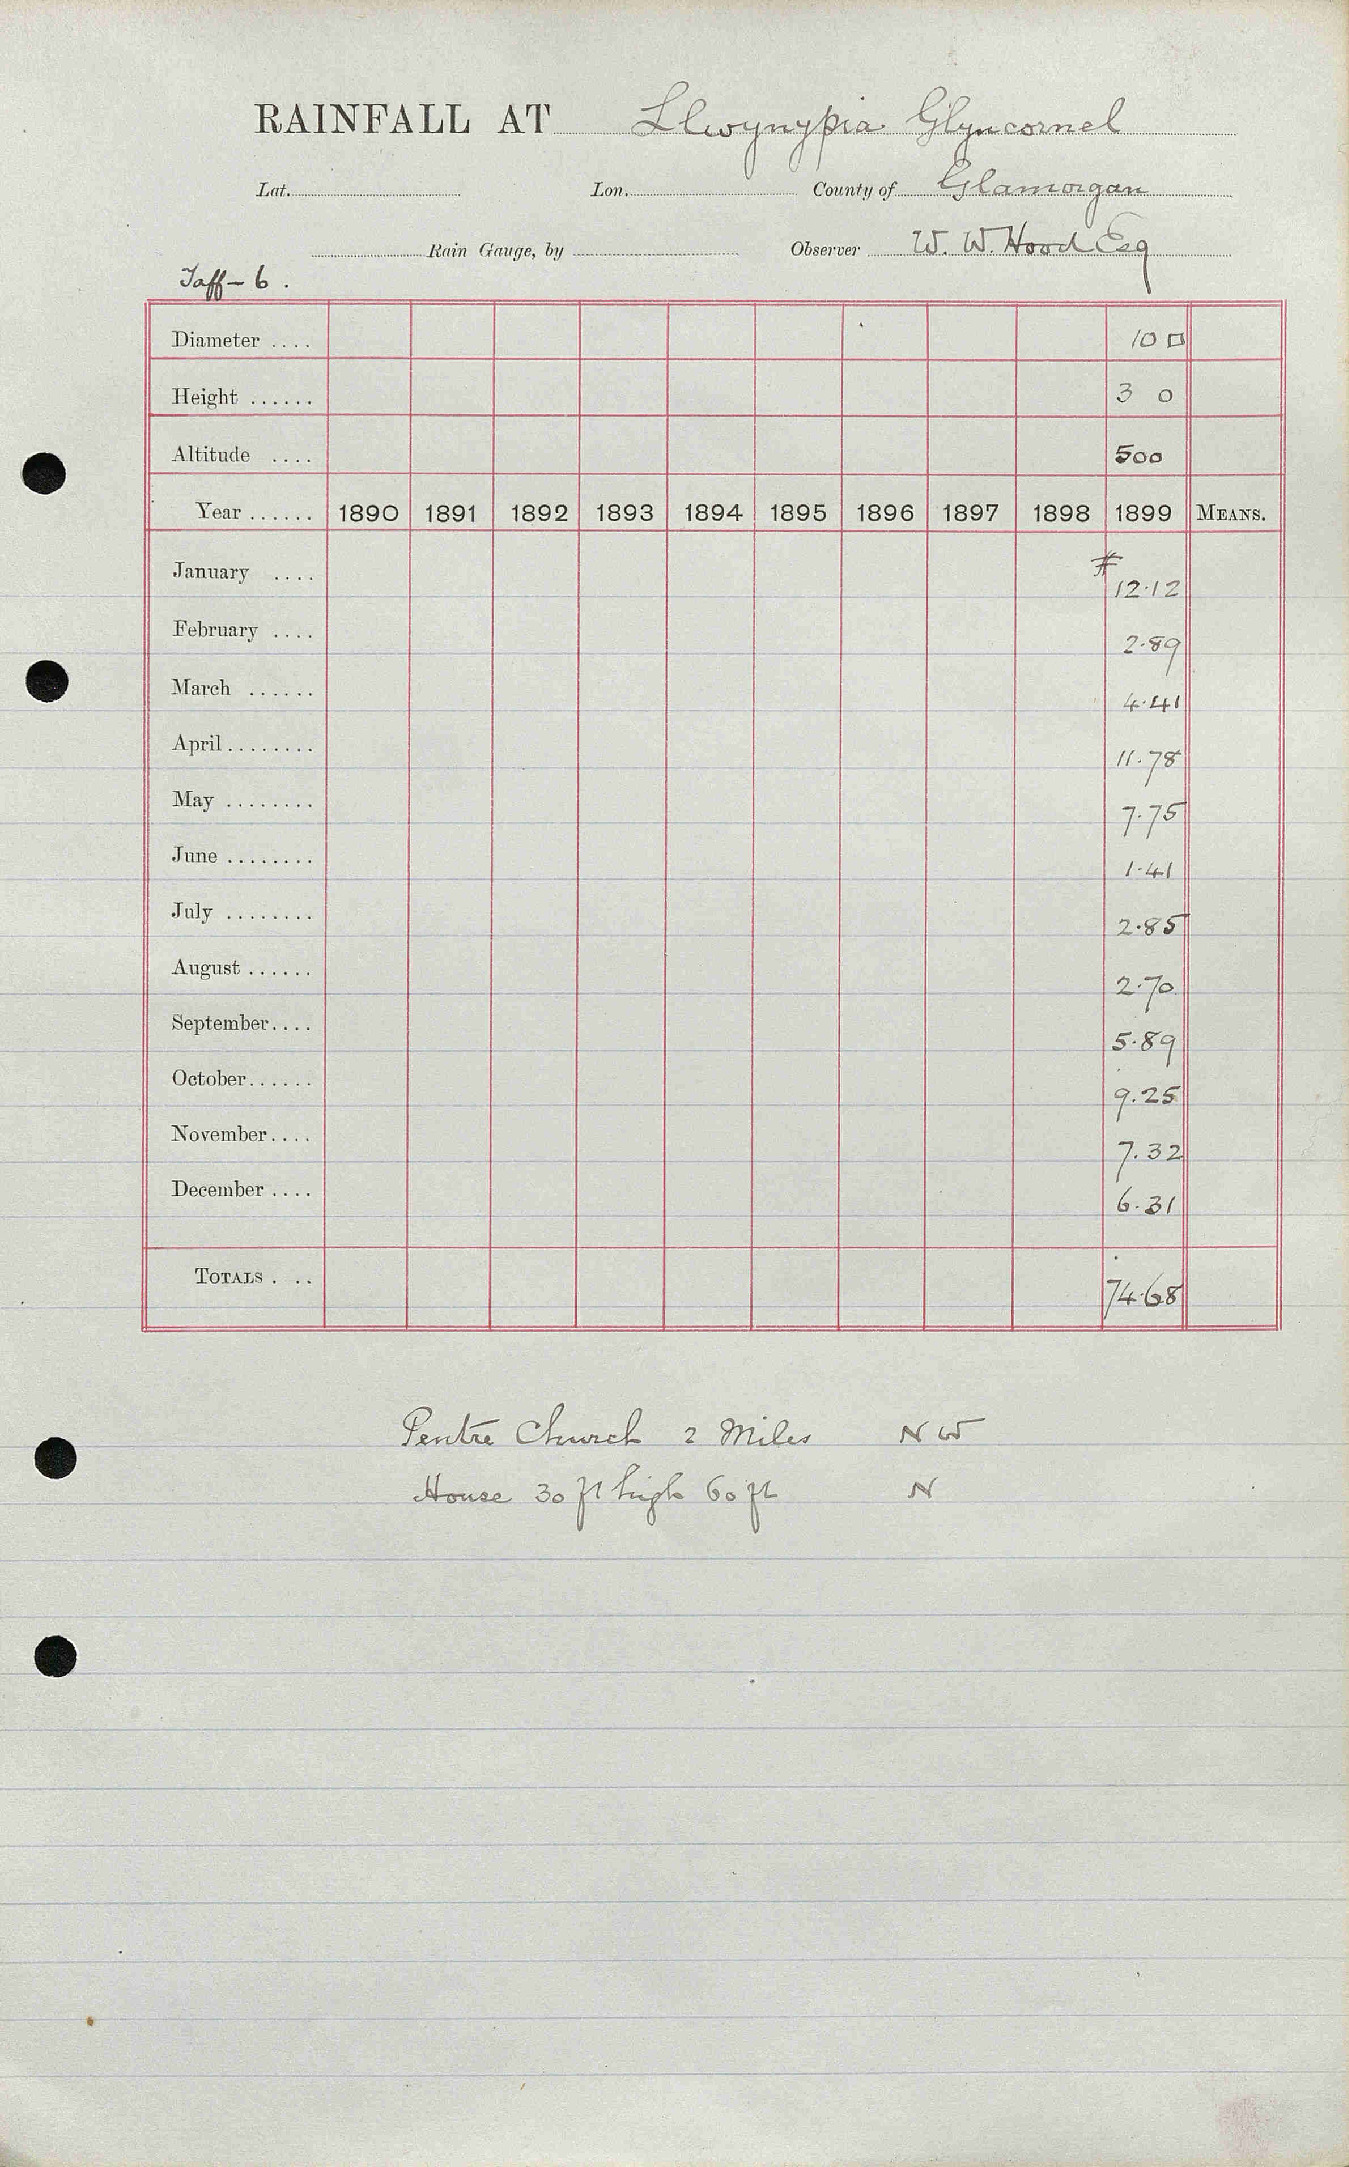 RAINFALL AT Llwynypia Glyncornel
Lat. Lon. County of Glamorgan
Rain Gauge, by Observer W. W. Hood Esq
Taff-6.
Diameter .... 10 □
Height ...... 3 0
Altitude .... 500
Year ...... 1890 1891 1892 1893 1894 1895 1896 1897 1898 1899 MEANS.
January .... # 12.12
February .... 2.89
March ...... 4.41
April ........ 11.78
May ........ 7.75
June ........ 1.41
July ........ 2.85
August ...... 2.70
September.... 5.89
October...... 9.25
November.... 7.32
December .... 6.31
TOTALS . .. 74.68
Pentre Church 2 Miles NW
House 30 ft high 60 ft N